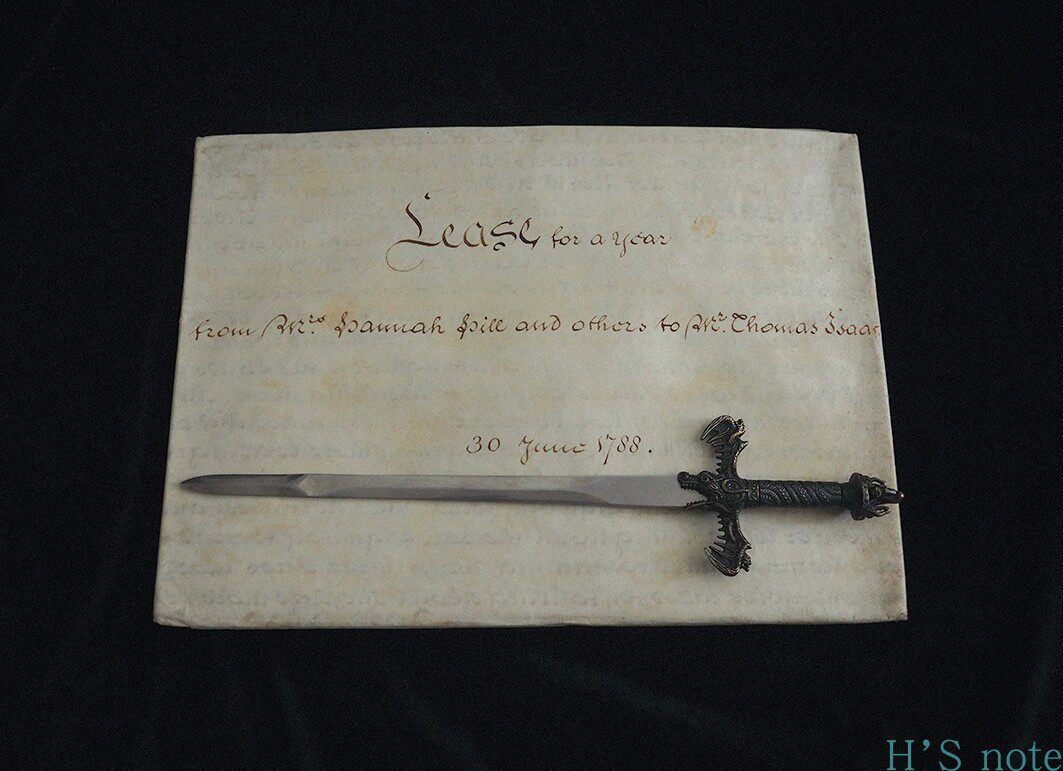 Lease for a year
from Mrs. Hannah Hill and others to Mr. Thomas Isaac
30 June 1788.
H'S note